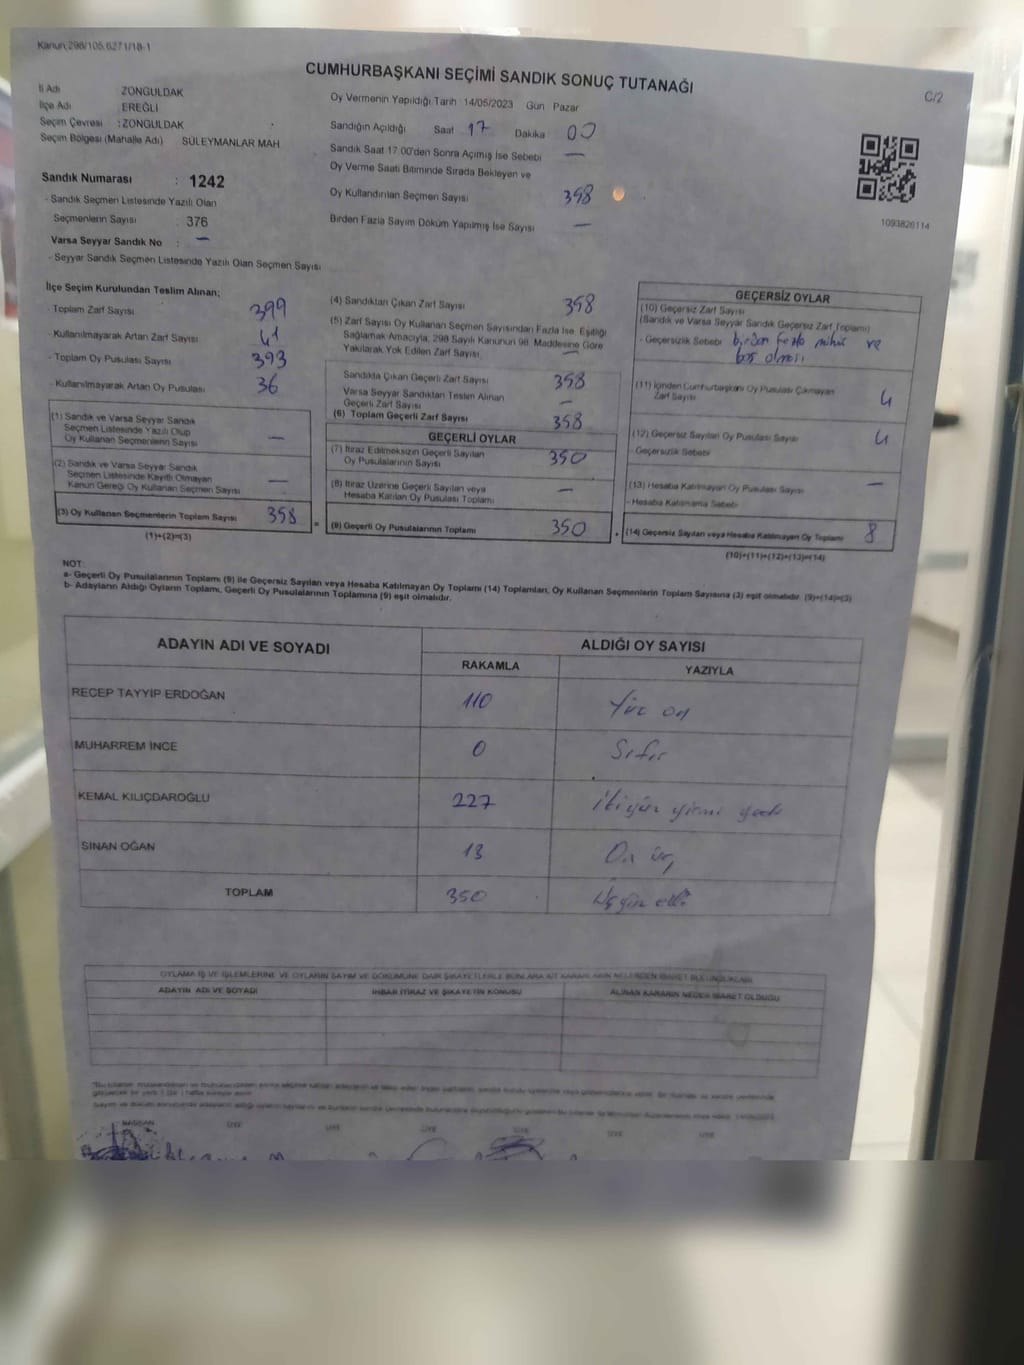 Kanun:298/105,6271/18-1
CUMHURBAŞKANI SEÇİMİ SANDIK SONUÇ TUTANAĞI
C/2
İl Adı ZONGULDAK
İlçe Adı EREĞLİ
Seçim Çevresi : ZONGULDAK
Seçim Bölgesi (Mahalle Adı) SÜLEYMANLAR MAH
Oy Vermenin Yapıldığı Tarih 14/05/2023 Gün Pazar
Sandığın Açıldığı Saat 17 Dakika 00
Sandık Saat 17.00'den Sonra Açımış İse Sebebi —
Oy Verme Saati Bitiminde Sırada Bekleyen ve
Oy Kullandırılan Seçmen Sayısı 358
Birden Fazla Sayım Döküm Yapılmış İse Sayısı —
1093826114
Sandık Numarası : 1242
- Sandık Seçmen Listesinde Yazılı Olan
Seçmenlerin Sayısı : 376
Varsa Seyyar Sandık No : —
- Seyyar Sandık Seçmen Listesinde Yazılı Olan Seçmen Sayısı
İlçe Seçim Kurulundan Teslim Alınan;
- Toplam Zarf Sayısı 399
- Kullanılmayarak Artan Zarf Sayısı 41
- Toplam Oy Pusulası Sayısı 393
- Kullanılmayarak Artan Oy Pusulası 36
(1) Sandık ve Varsa Seyyar Sandık
Seçmen Listesinde Yazılı Olup
Oy Kullanan Seçmenlerin Sayısı —
(2) Sandık ve Varsa Seyyar Sandık
Seçmen Listesinde Kayıtlı Olmayan
Kanun Gereği Oy Kullanan Seçmen Sayısı —
(3) Oy Kullanan Seçmenlerin Toplam Sayısı 358
(1)+(2)=(3)
(4) Sandıktan Çıkan Zarf Sayısı 358
(5) Zarf Sayısı Oy Kullanan Seçmen Sayısından Fazla İse, Eşitliği
Sağlamak Amacıyla, 298 Sayılı Kanunun 98. Maddesine Göre
Yakılarak Yok Edilen Zarf Sayısı —
Sandıkta Çıkan Geçerli Zarf Sayısı 358
Varsa Seyyar Sandıktan Teslim Alınan
Geçerli Zarf Sayısı —
(6) Toplam Geçerli Zarf Sayısı 358
GEÇERLİ OYLAR
(7) İtiraz Edilmeksizin Geçerli Sayılan
Oy Pusulalarının Sayısı 350
(8) İtiraz Üzerine Geçerli Sayılan veya
Hesaba Katılan Oy Pusulası Toplamı —
= (9) Geçerli Oy Pusulalarının Toplamı 350
GEÇERSİZ OYLAR
(10) Geçersiz Zarf Sayısı
(Sandık ve Varsa Seyyar Sandık Geçersiz Zarf Toplamı)
- Geçersizlik Sebebi birden fazla mühür ve
boş olması
(11) İçinden Cumhurbaşkanı Oy Pusulası Çıkmayan
Zarf Sayısı 4
(12) Geçersiz Sayılan Oy Pusulası Sayısı 4
- Geçersizlik Sebebi
(13) Hesaba Katılmayan Oy Pusulası Sayısı —
- Hesaba Katılmama Sebebi
+ (14) Geçersiz Sayılan veya Hesaba Katılmayan Oy Toplamı 8
(10)+(11)+(12)+(13)=(14)
NOT:
a- Geçerli Oy Pusulalarının Toplamı (9) ile Geçersiz Sayılan veya Hesaba Katılmayan Oy Toplamı (14) Toplamları, Oy Kullanan Seçmenlerin Toplam Sayısına (3) eşit olmalıdır. (9)+(14)=(3)
b- Adayların Aldığı Oyların Toplamı, Geçerli Oy Pusulalarının Toplamına (9) eşit olmalıdır.
ADAYIN ADI VE SOYADI ALDIĞI OY SAYISI
RAKAMLA YAZIYLA
RECEP TAYYİP ERDOĞAN 110 Yüz on
MUHARREM İNCE 0 Sıfır
KEMAL KILIÇDAROĞLU 227 ikiyüz yirmi yedi
SİNAN OĞAN 13 On üç
TOPLAM 350 üçyüz elli
OYLAMA İŞ VE İŞLEMLERİNE VE OYLARIN SAYIM VE DÖKÜMÜNE DAİR ŞİKAYETLERLE BUNLARA AİT KARARLARIN NELERDEN İBARET BULUNDUKLARI
ADAYIN ADI VE SOYADI İHBAR İTİRAZ VE ŞİKAYETİN KONUSU ALINAN KARARIN NEDEN İBARET OLDUĞU
BAŞKAN ÜYE ÜYE ÜYE ÜYE ÜYE ÜYE